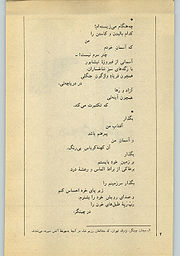 چه هنگام می‌زیسته‌ام؟
کدام بالیدن و کاستن را
من
که آسمان خودم
چتر سرم نیست؟ـ
آسمانی از فیروزه نیشابور
با رگه‌های سبز شاخساران
همچون فریاد واژگون جنگلی
در دریاچه‌ئی،
آزاد و رها
همچون آینه‌ئی
که تکثیرت می‌کند.
بگذار
آفتاب من
پیرهنم باشد
و آسمان من
آن کهنه کرباس بی‌رنگ.
بگذار
بر زمین خود بایستم
بر خاکی از براده الماس و رعشه درد
بگذار سرزمینم را
زیر پای خود احساس کنم
و صدای رویش خود را بشنوم
رپ‌رپه طبل‌های خون را
در چیتگر